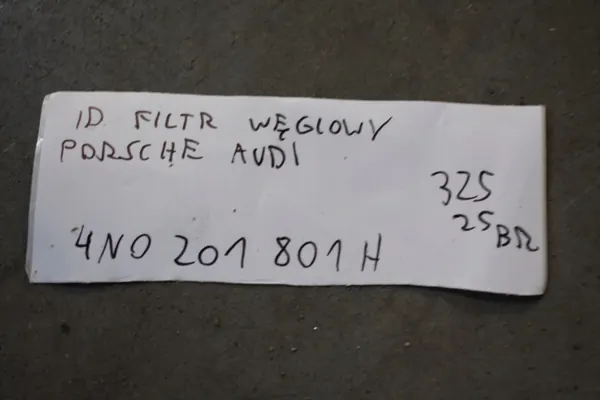 ID FILTR WĘGLOWY
PORSCHE AUDI
325
25 BR
4N0 201 801 H